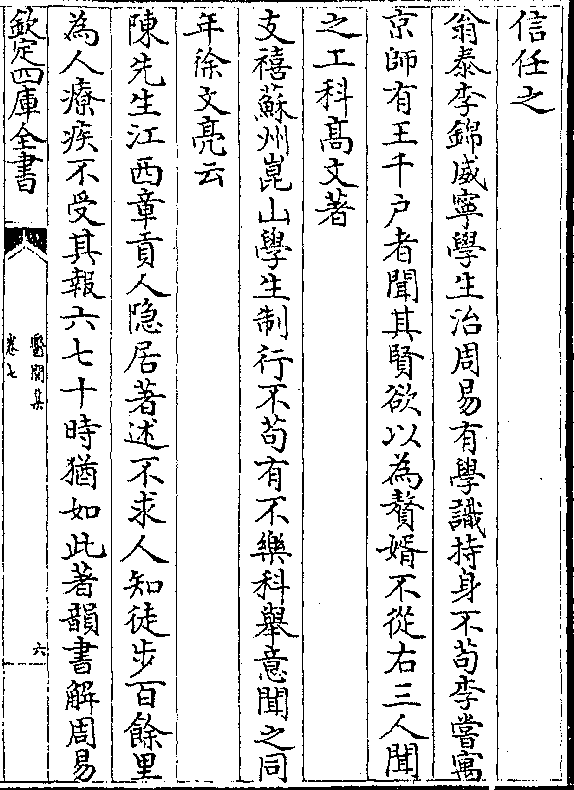 信任之
翁泰李錦威寧學生治周易有學識持身不苟李嘗寓
京師有王千户者聞其賢欲以為贅婿不從右三人聞
之工科髙文著
支禧蘇州崑山學生制行不苟有不樂科舉意聞之同
年徐文亮云
陳先生江西章貢人隐居著述不求人知徒步百餘里
為人療疾不受其報六七十時猶如此著韻書解周易
欽定四庫全書
醫閭集
卷七
六